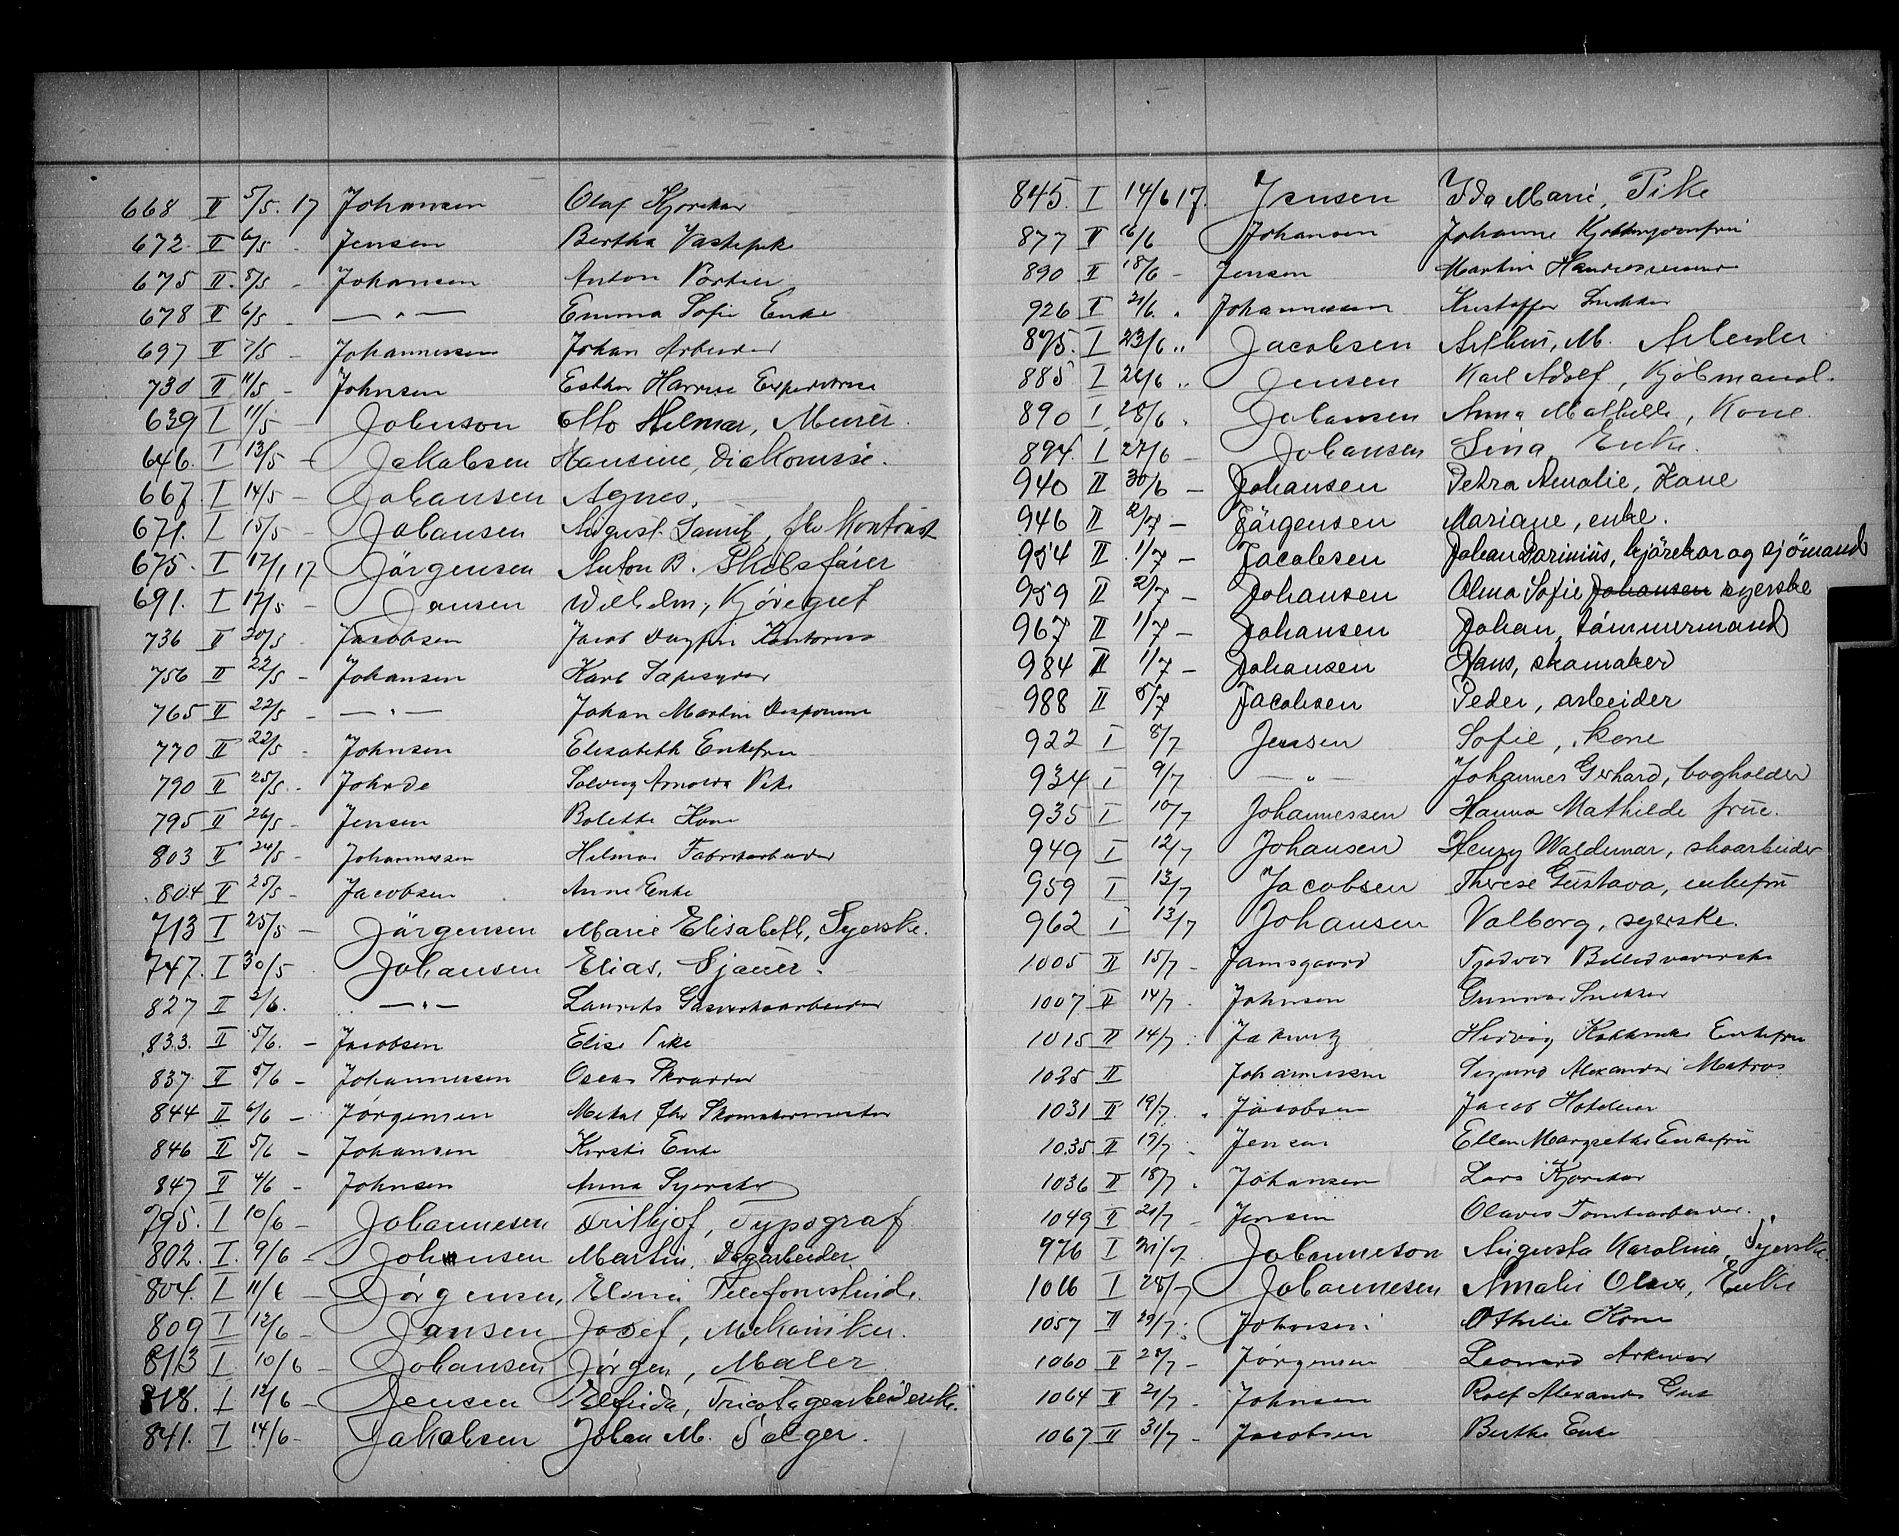 668 II 5/5. 17 Johansen Olaf Kjørekar
672 II 6/5 - Jensen Bertha
675 II. 8/5 - Johansen Anton Portier
678 II 6/5 - — " — Emma Sofie Enke
697 II 7/5 - Johannessen Johan Arbeider
730 II 11/5 - Johnsen Esther Expeditrise
639 I 11/5 - Johnson Otto Hilmar, Murer.
646. I 13/5 - Jakobsen Hansine, Diakonisse.
667. I 14/5 - Johansen Agnes.
671. I 15/5 - Johansen August Laurits, fhv Kontorist
675. I 12/1 17 Jörgensen Anton B. Skibsfører
691. I 12/5 - Jansen Wilhelm, Kjøregut
736 II 20/5 - Jacobsen Jacob Kontorist
756 II 22/5 - Johansen Karl Tapetserer
765 II 22/5 - — " — Johan Martin
770 II 22/5 - Johnsen Elisabeth Enkefru
790 II 25/5 - Solveig Pike
795 II 26/5 - Jensen Bolette Kone
803 II 24/5 - Johannessen Hilmar Fabrikarbeider
804 II 25/5 - Jacobsen Anne Enke
713 I 25/5 - Jörgensen Marie Elisabeth, Syerske.
747. I 30/5 Johansen Elias, Sjauer.
827 II 2/6. — " — Laurits Gasverksarbeider
833. II 5/6. - Jacobsen Elise Pike
837 II 5/6 - Johannessen Oscar Skrædder
844 II 6/6 - Jørgensen fhv Skomakermester
846 II 5/6 - Johansen Kirsti Enke
847 II 4/6 - Johnsen Anna Syerske
795. I 10/6 - Johannesen Frithjof, Typograf
802. I. 9/6 - Johansen Martin, Dagarbeider
804. I 11/6 - Jørgensen, Telefonistinde.
809 I 12/6 - Jansen Josef, Mekaniker.
813 I. 10/6 - Johansen Jørgen, Maler
818. I 12/6 - Jensen Elfrida, Tricotagearbeiderske.
841. I 14/6 - Jakobsen Johan M. Sælger.
845. I 14/6 17. Jensen Ida Marie, Pike
877 II 16/6 Johansen Johanne
890 II 18/6 - Jensen Martin
926 I 21/6. " Johannessen Kristoffer Snekker
875. I 23/6 " Jacobsen Arthur, M. Arbeider
885 I 26/6 " Jensen Karl Adolf, Kjøbmand.
890 I. 28/6 " Johansen Anna Mathilde, Kone.
894. I 27/6 - Johansen Lina, Enke.
940 II 30/6 - Johansen Petra Amalie, Kone
946 II 2/7 - Jörgensen Mariane, enke.
954 II 1/7 - Jacobsen Johan Marinius, kjørekar og sjømand
959 II 2/7 - Johansen Alma Sofie Johansen syerske
967 II 1/7 - Johansen Johan, tømmermand
984 II 1/7 - Johansen Hans, skomaker
988 II 5/7 Jacobsen Peder, arbeider
922 I 8/7 Jensen Sofie, kone
934 I 9/7 — " — Johannes Gerhard, bogholder
935 I 10/7 Johannessen Hanna Mathilde frue.
949 I 12/7 Johansen Henry Waldemar, skoarbeider
959 I 13/7 Jacobsen Therese Gustava, enkefru
962 I 13/7 Johansen Valborg, syerske.
1005 II 15/7 - Jamsgaard
1007 II 14/7. Johnsen Gunnar Snekker
1015 II 14/7. Hedvig Enkefru
1025 II Johannessen Sigurd Alexander Matros
1031 II 19/7. " Jacobsen Jacob
1035 II 19/7. Jensen Ellen Margrethe Enkefru
1036 II 18/7 " Johansen Lars Kjørekar
1049 II 21/7 - Jensen Olaves Tomtearbeider.
976 I 21/7. Johanneson Augusta Karolina, Syerske.
1016 I 28/7 Johannesen Amalie Olava, Enke
1057 II 29/7. Johnsen Othelie Kone
1060 II 28/7 - Jørgensen Leonard
1064 II 21/7 - Johnsen Rolf Alexander Gut
1067 II 31/7 - Jacobsen Berthe Enke